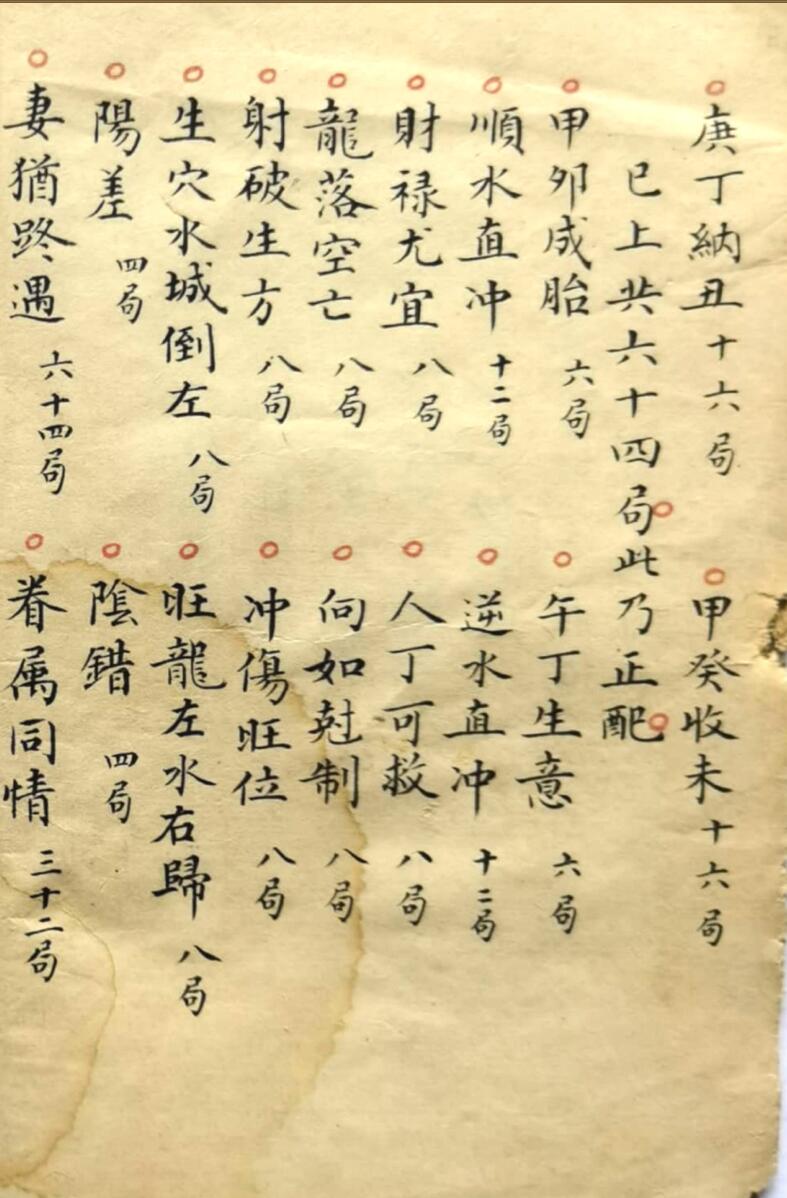 庚丁納丑十六局 甲癸收未十六局
已上共六十四局此乃正配
甲卯成胎六局 午丁生意六局
順水直冲十二局 逆水直冲十二局
財禄尤宜八局 人丁可救八局
龍落空亡八局 向如尅制八局
射破生方八局 冲傷旺位八局
生穴水城倒左八局 旺龍左水右歸八局
陽差四局 陰錯四局
妻猶路遇六十四局 眷属同情三十二局